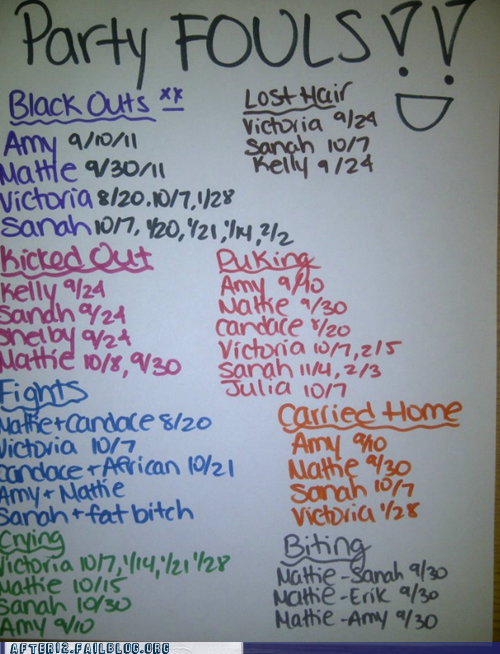 Party FOULS!!
Black Outs xx
Amy 9/10/11
Mattie 9/30/11
Victoria 8/20. 10/7, 1/28
Sarah 10/7, 1/20, 1/21, 1/14, 2/2
Lost Hair
Victoria 9/24
Sarah 10/7
Kelly 9/24
Kicked Out
Kelly 9/24
Sarah 9/24
Shelby 9/24
Mattie 10/8, 9/30
Puking
Amy 9/10
Mattie 9/30
Candace 8/20
Victoria 10/7, 2/5
Sarah 11/4, 2/3
Julia 10/7
Fights
Mattie + Candace 8/20
Victoria 10/7
Candace + African 10/21
Amy + Mattie
Sarah + fat bitch
Carried Home
Amy 9/10
Mattie 9/30
Sarah 10/7
Victoria 1/28
Crying
Victoria 10/7, 1/14, 1/21 1/28
Mattie 10/15
Sarah 10/30
Amy 9/10
Biting
Mattie - Sarah 9/30
Mattie - Erik 9/30
Mattie - Amy 9/30
AFTER12.FAILBLOG.ORG